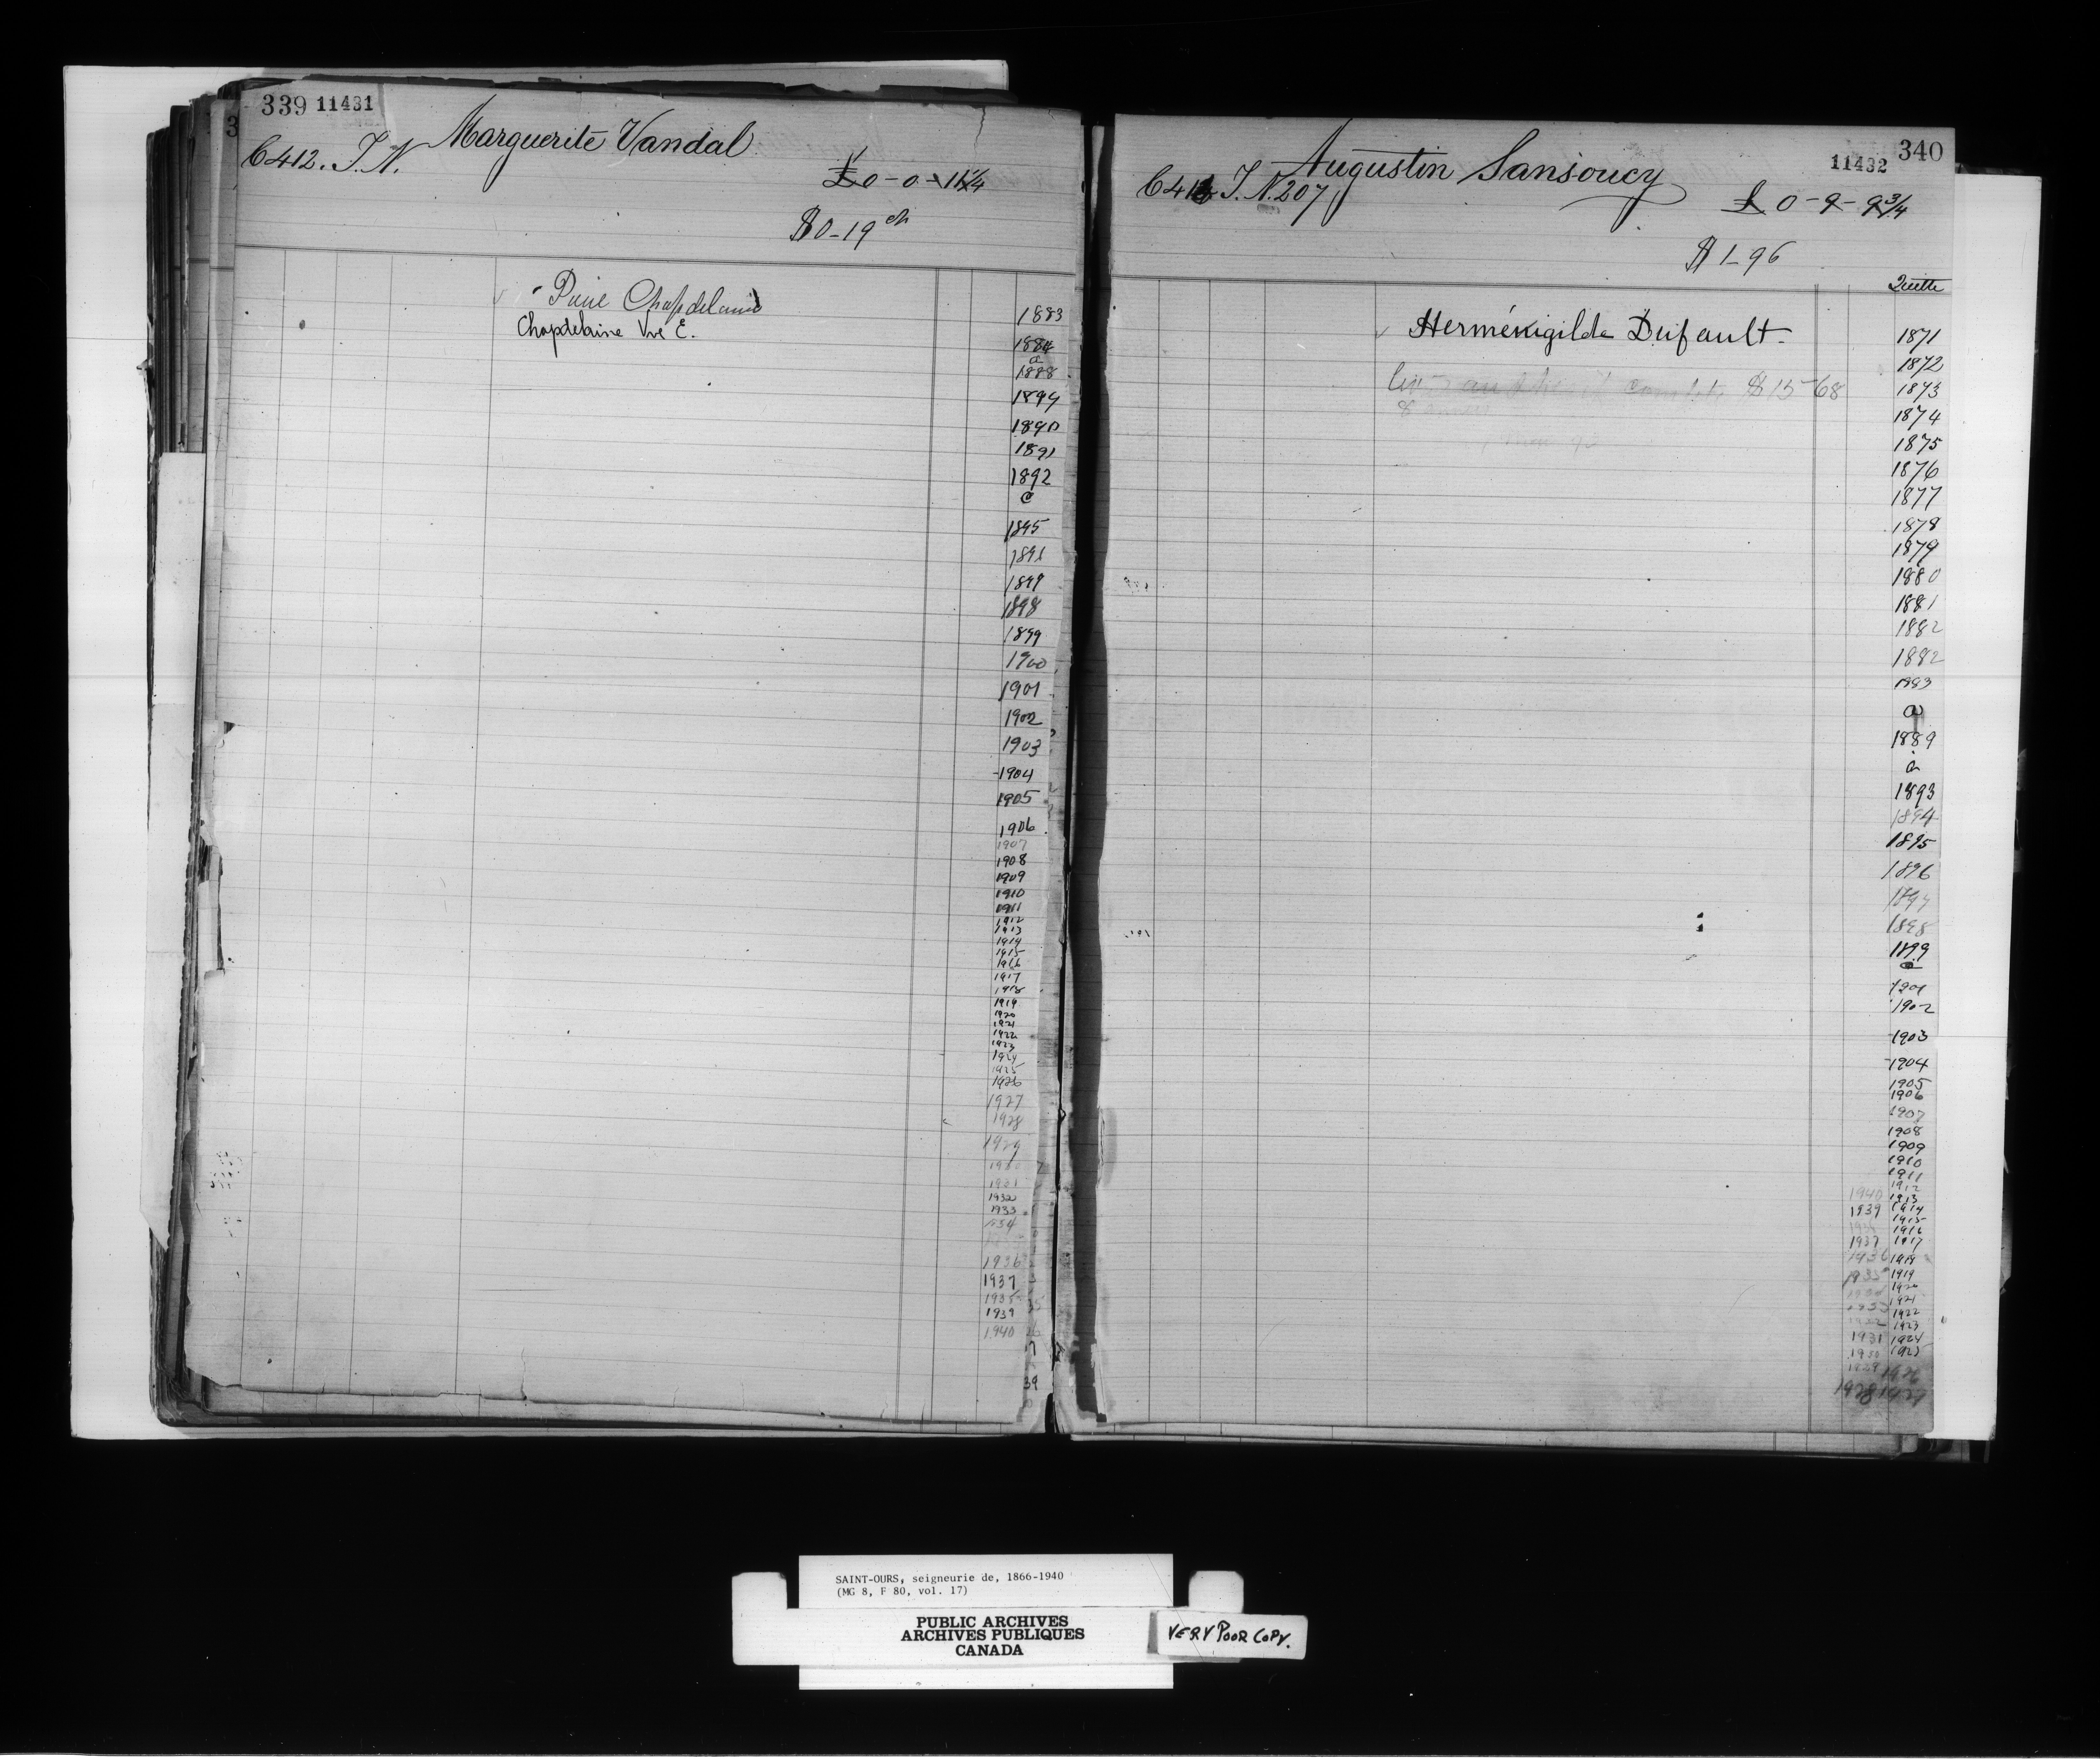 339 11431
Marguerite Vandal
C 412. T. N.
£ 0-0-11 1/4
$0-19 cts
Chapdelaine
Chapdelaine Vve E.
1883
1884
a
1888
1889
1890
1891
1892
a
1895
1896
1897
1898
1899
1900
1901
1902
1903
1904
1905
1906
1907
1908
1909
1910
1911
1912
1913
1914
1915
1916
1917
1918
1919
1920
1921
1922
1923
1924
1925
1926
1927
1928
1929
1930
1931
1932
1933
1934
1936
1937
1938
1939
1940
340
11432
Augustin Sansoucy
T. N. 207
£ 0-9-9 3/4
$ 1-96
Quitte
Herménigilde Dufault
$15-68
1871
1872
1873
1874
1875
1876
1877
1878
1879
1880
1881
1882
1882
1883
a
1889
a
1893
1894
1895
1896
1897
1898
1899
a
1901
1902
1903
1904
1905
1906
1907
1908
1909
1910
1911
1912
1940 1913
1939 1914
1915
1916
1937 1917
1936 1918
1935 1919
1920
1921
1933 1922
1923
1931 1924
1930 1925
1929 1926
1928 1927
SAINT-OURS, seigneurie de, 1866-1940
(MG 8, F 80, vol. 17)
PUBLIC ARCHIVES
ARCHIVES PUBLIQUES
CANADA
VERY POOR COPY.